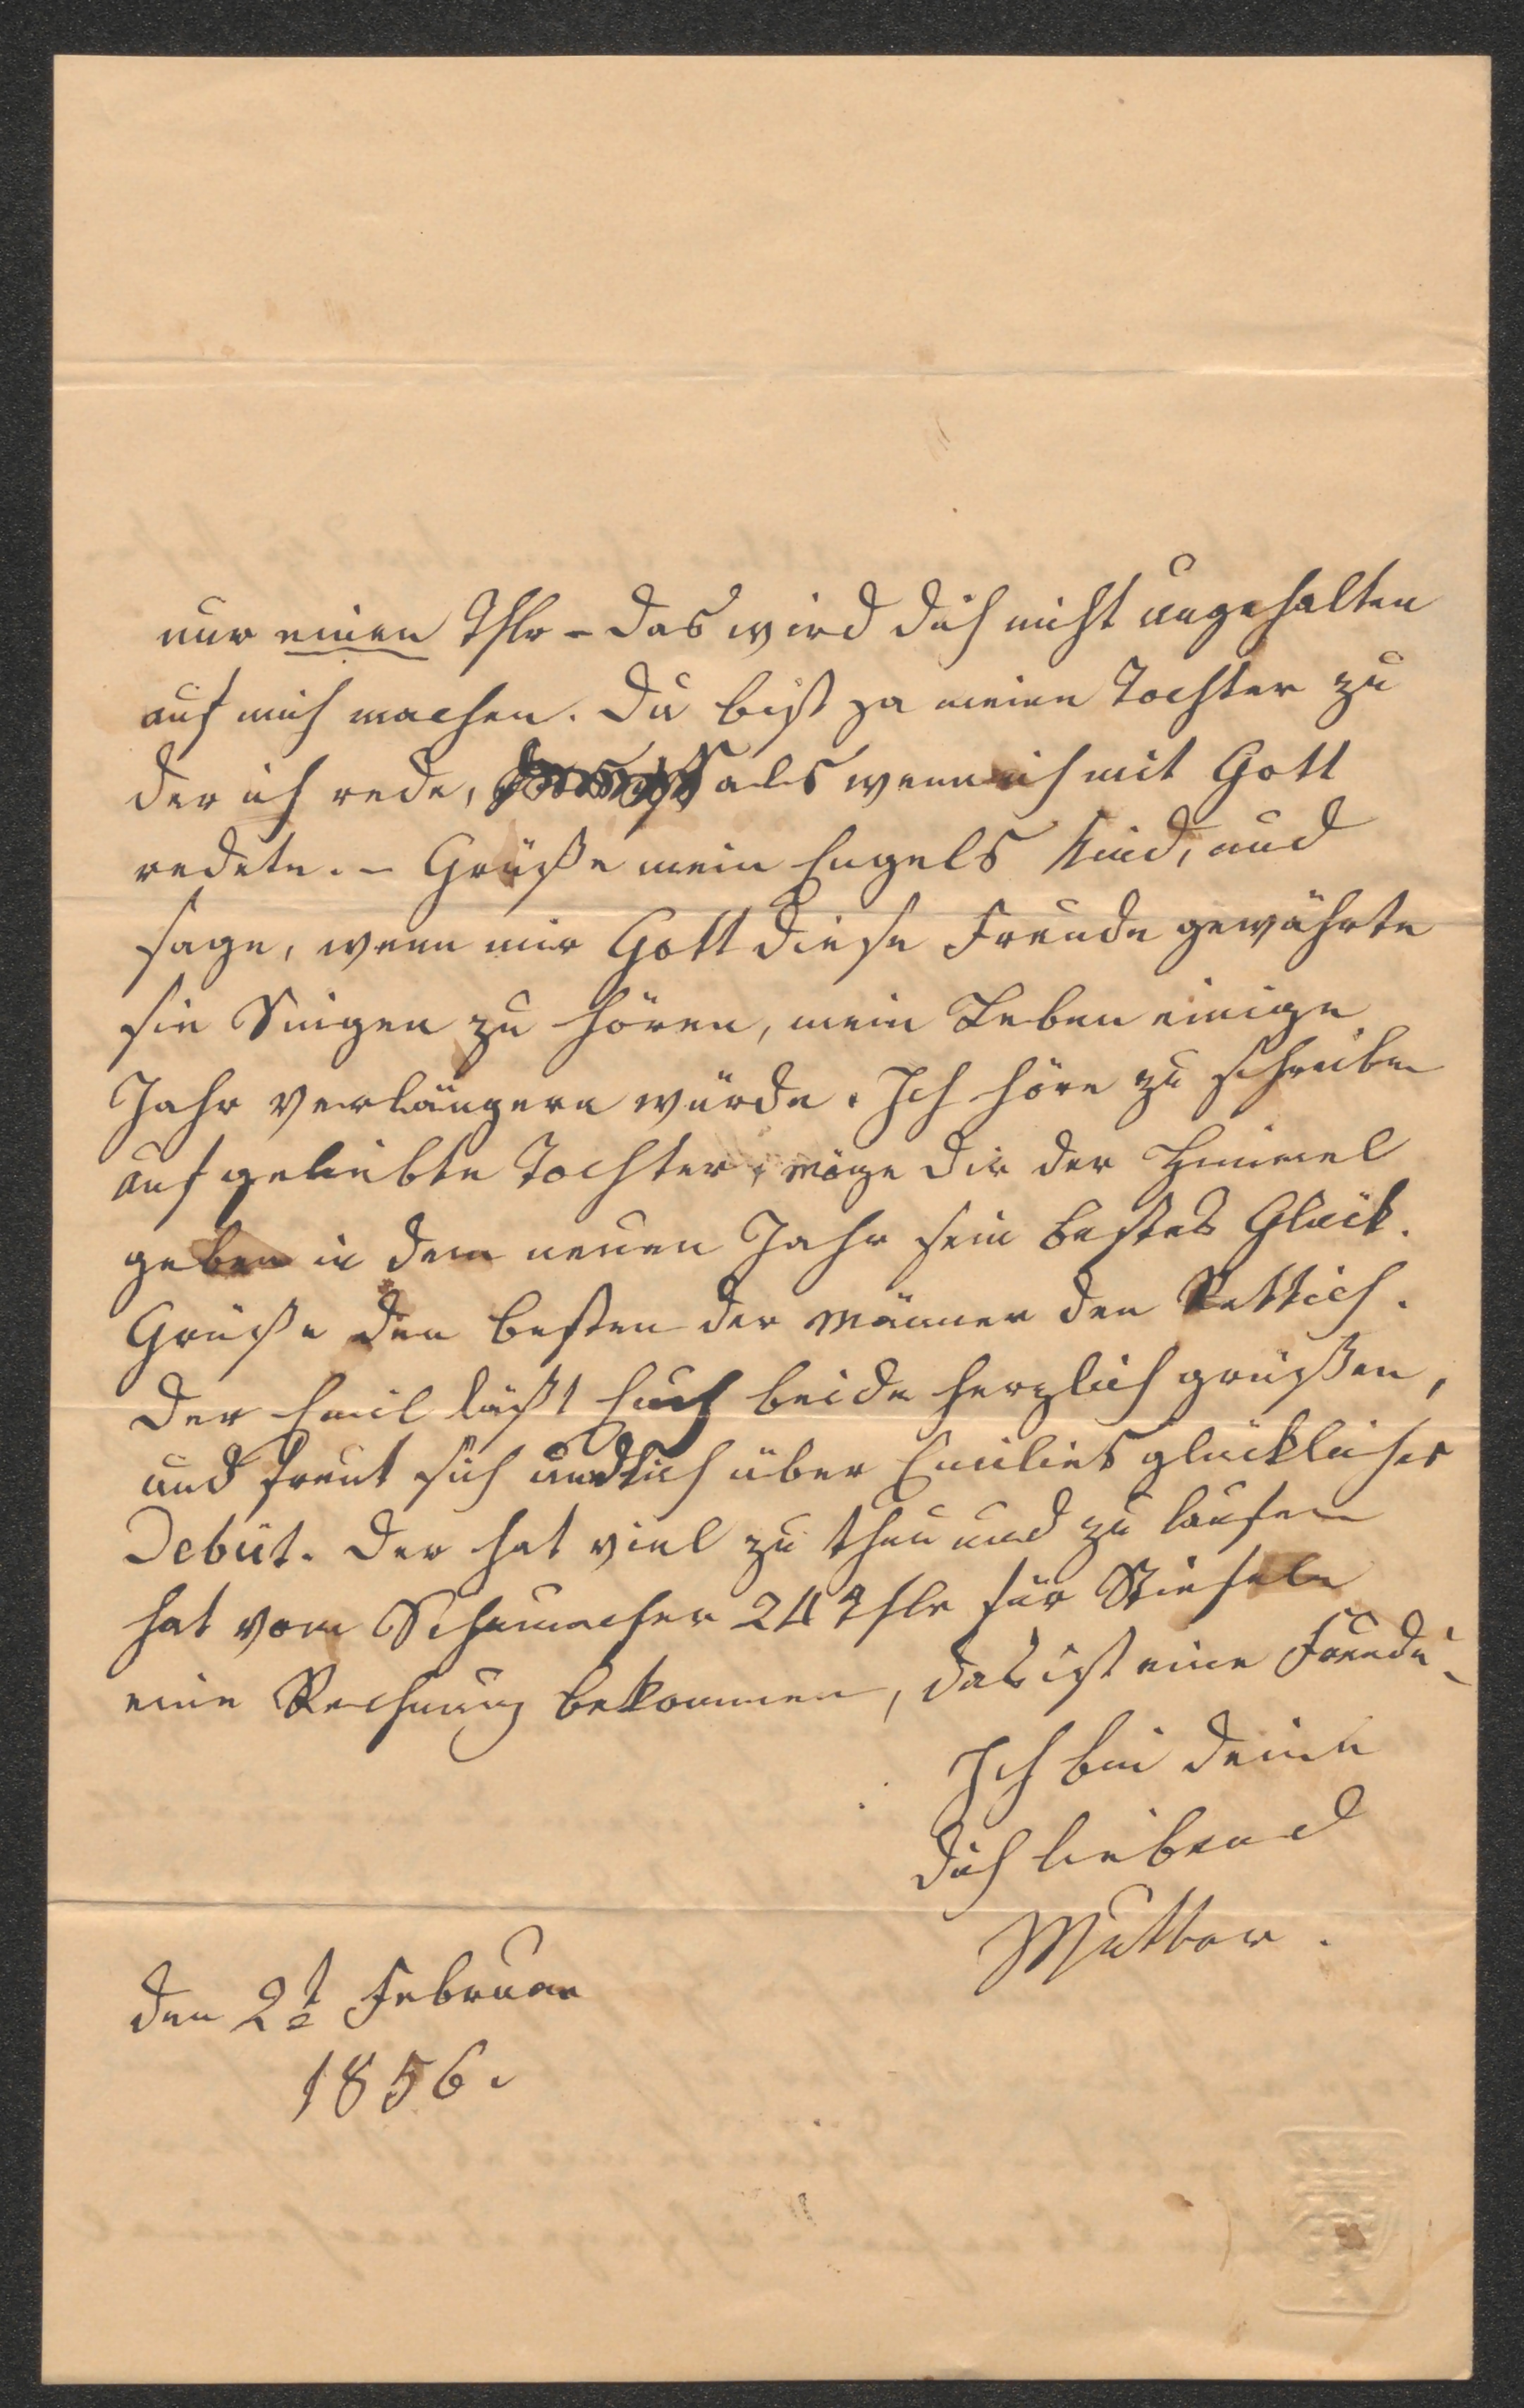 nur einen Thlr – das wird dich nicht ungehalten
auf mich machen. Du bist ja meine Tochter zu
der ich rede, als wenn ich mit Gott
redete. – Grüße mein Engels Kind, und
sage, wenn mir Gott diese Freude gewährte
sie Singen zu hören, mein Leben einige
Jahr verlängern würde. Ich höre zu schreiben
auf geliebte Tochter, möge dir der Himmel
geben in dem neuen Jahr sein bestes Glück.
Grüße den besten der Männer den Rettich.
Der Emil läßt Euch beide herzlich grüßen,
und freut sich über Emiliens glückliches
Debüt. Der hat viel zu thun und zu laufen
hat vom Schumacher 24 Thlr für Stiefeln
eine Rechnung bekommen, das ist eine Freude
Ich bin deine
dich liebend
Mutter.
den 2t Februar
1856.